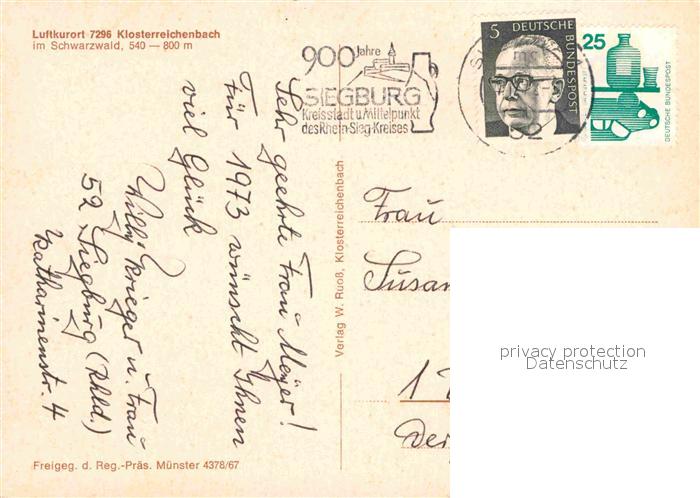 Luftkurort 7296 Klosterreichenbach
im Schwarzwald, 540 — 800 m
900 Jahre
SIEGBURG
Kreisstadt u. Mittelpunkt
des Rhein-Sieg-Kreises
5 DEUTSCHE BUNDESPOST
25
DEUTSCHE BUNDESPOST
Sehr geehrte Frau Meyer!
Für 1973 wünscht Ihnen
viel Glück
Willi Krieger u. Frau
52 Siegburg (Rhld.)
Katharinenstr. 4
Verlag W. Ruoß, Klosterreichenbach
Frau
Susan
1
Der
privacy protection
Datenschutz
Freigeg. d. Reg.-Präs. Münster 4378/67